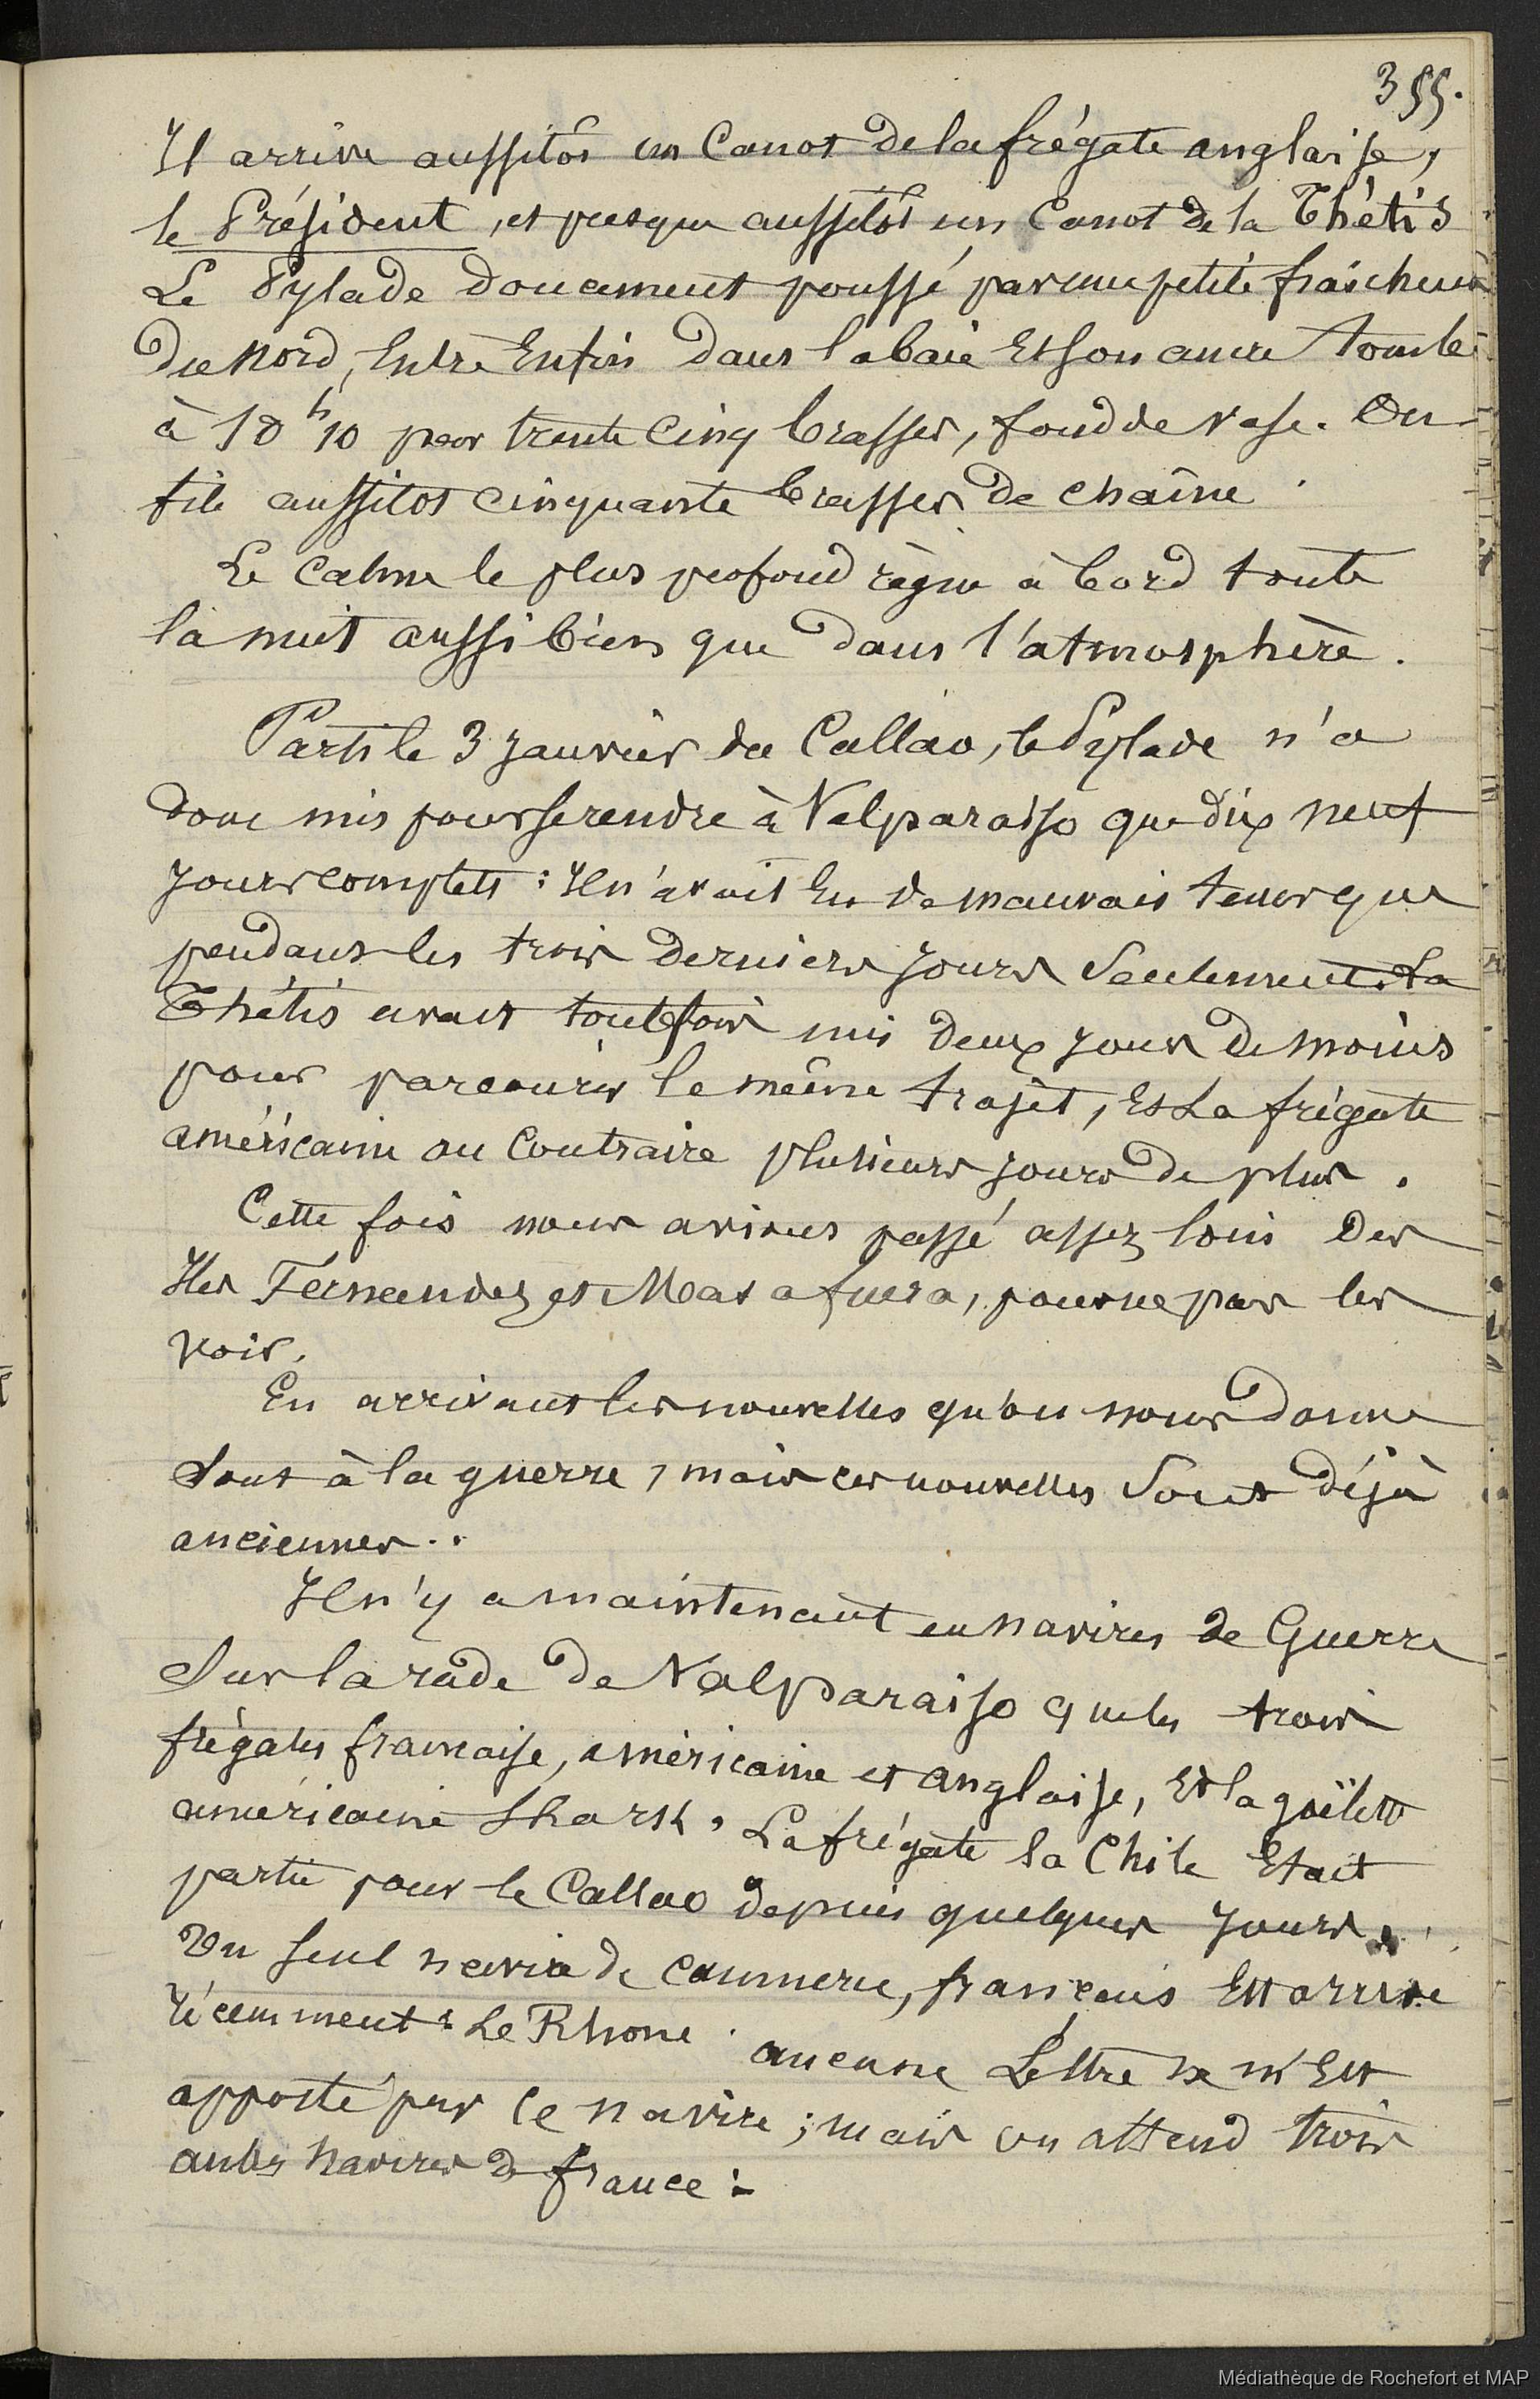 355.
Il arrive aussitôt un Canot de la frégate anglaise,
le Président, et presque aussitôt un Canot de la Thétis
Le Pylade doucement poussé par une petite fraîcheur
du Nord, Entre Enfin dans la baie Et son ancre tombe
à 10 h 10 par trente cinq brasses, fond de vase. On
file aussitot cinquante brasses de chaîne.
Le calme le plus profond règne à bord toute
la nuit aussi bien que dans l'atmosphère.
Parti le 3 Janvier du Callao, le Pylade n'a
donc mis pour se rendre à Valparaiso que dix neuf
Jours complets : Il n'avait Eu de mauvais temps que
pendant les trois derniers Jours Seulement. La
Thétis avait toutefois mis deux Jours de moins
pour parcourir le même trajet, Et La frégate
américaine au Contraire plusieurs Jours de plus.
Cette fois nous avions passé assez loin des
Iles Fernandez et Mas a fuera, pour ne pas les
voir.
En arrivant les nouvelles qu'on nous donne
Sont à la guerre, mais ces nouvelles Sont déjà
anciennes..
Il n'y a maintenant en navires de Guerre
Sur la rade de Valparaiso que les trois
frégates française, américaine et anglaise, Et la goëlette
américaine Shark. La frégate la Chile Etait
partie pour le Callao depuis quelques Jours.
Un seul navire de commerce, français Est arrivé
récemment : Le Rhone. aucune Lettre ne m'Est
apporté par ce navire ; mais on attend trois
autres navires de france :
Médiathèque de Rochefort et MAP